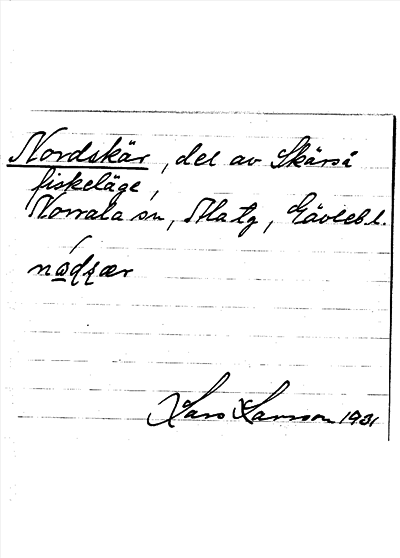 Nordskär, del av Skärså
fiskeläge,
Norrala sn, Ala tg, Gävlebl.
Lars Larsson 1931